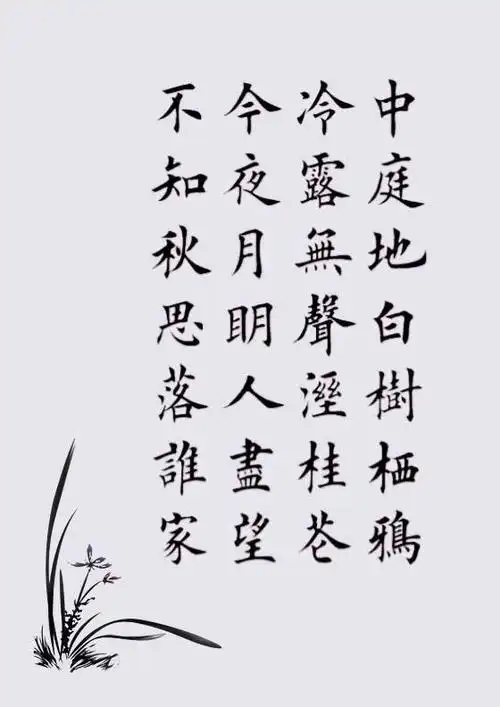 中庭地白樹栖鴉
冷露無聲溼桂花
今夜月明人盡望
不知秋思落誰家